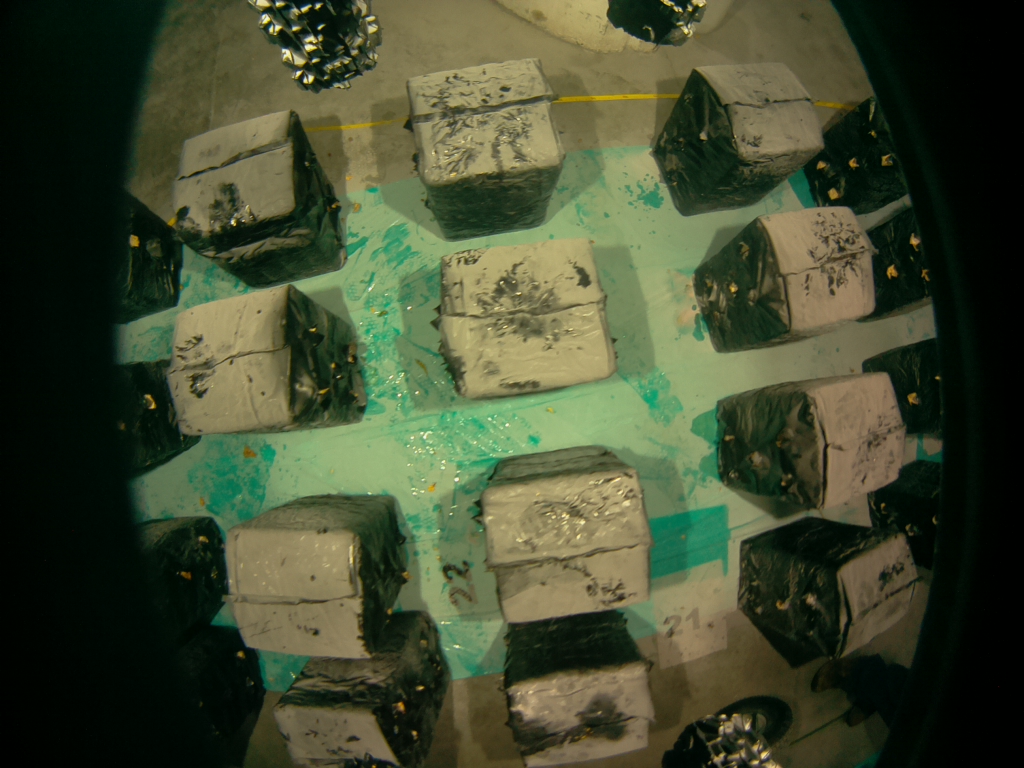 22
21